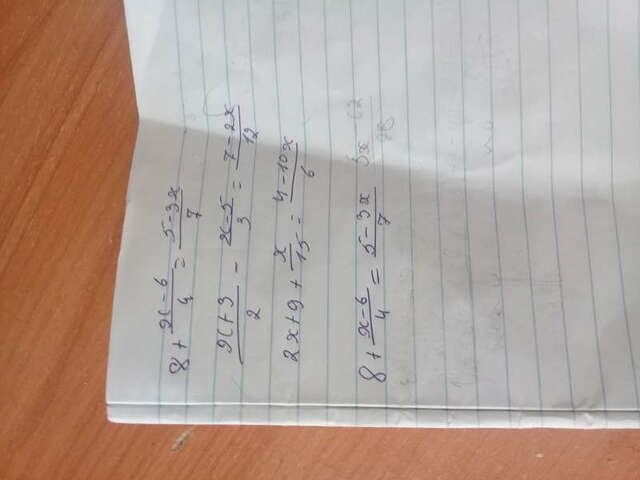 8 + (x-6)/4 = (5-3x)/7
(x+3)/2 - (x-5)/3 = (7-2x)/12
2x+9 + x/15 = (4-10x)/6
8 + (x-6)/4 = (5-3x)/7